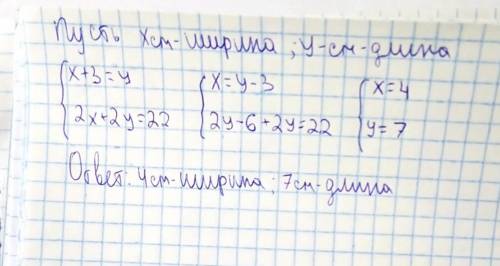 Пусть xсм-ширина ; y-см-длина
{x+3=y {x=y-3 {x=4
2x+2y=22 2y-6+2y=22 y=7
Ответ: 4см-ширина ; 7см-длина